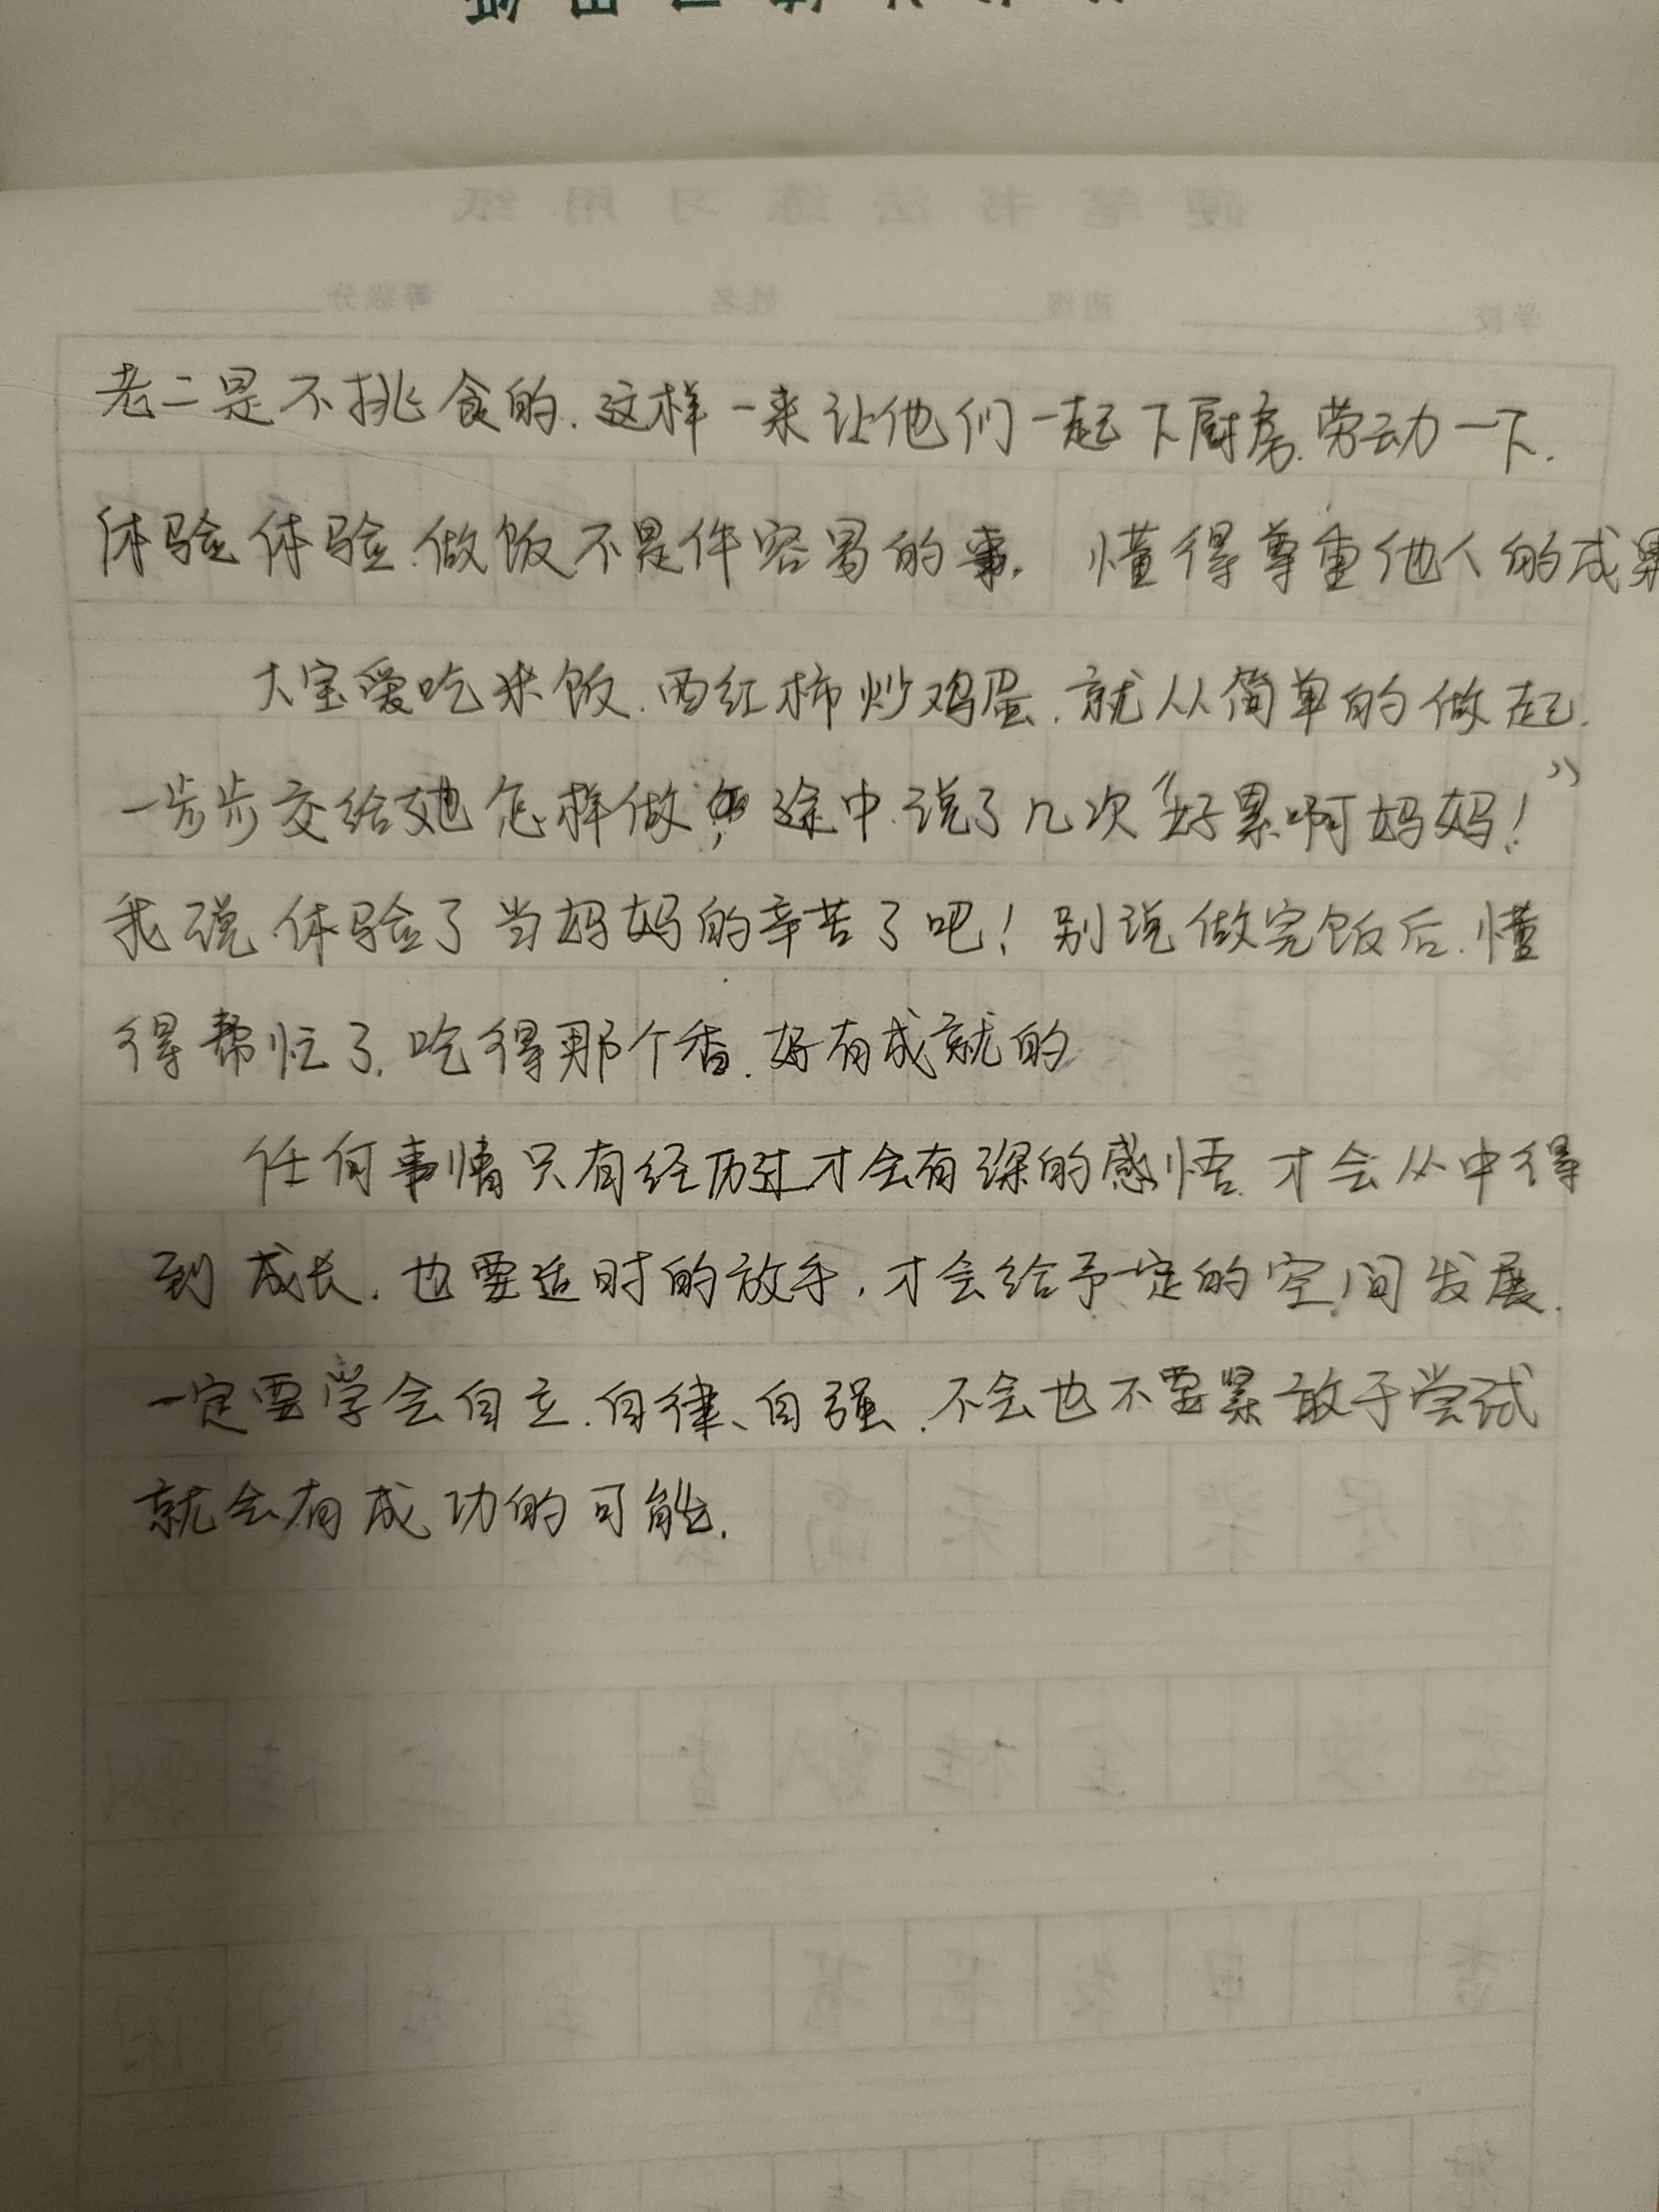 硬笔书法练习用纸
学校 班级 姓名 等级分
老二是不挑食的.这样一来让他们一起下厨房.劳动一下.
体验体验.做饭不是件容易的事. 懂得尊重他人的成果
大宝爱吃米饭.西红柿炒鸡蛋.就从简单的做起.
一步步交给她怎样做,途中.说了几次“好累啊妈妈!”
我说.体验了当妈妈的辛苦了吧!别说做完饭后.懂
得帮忙了.吃得那个香.好有成就的
任何事情只有经历过才会有深的感悟.才会从中得
到成长.也要适时的放手,才会给予一定的空间发展.
一定要学会自立.自律、自强.不会也不要紧敢于尝试
就会有成功的可能.